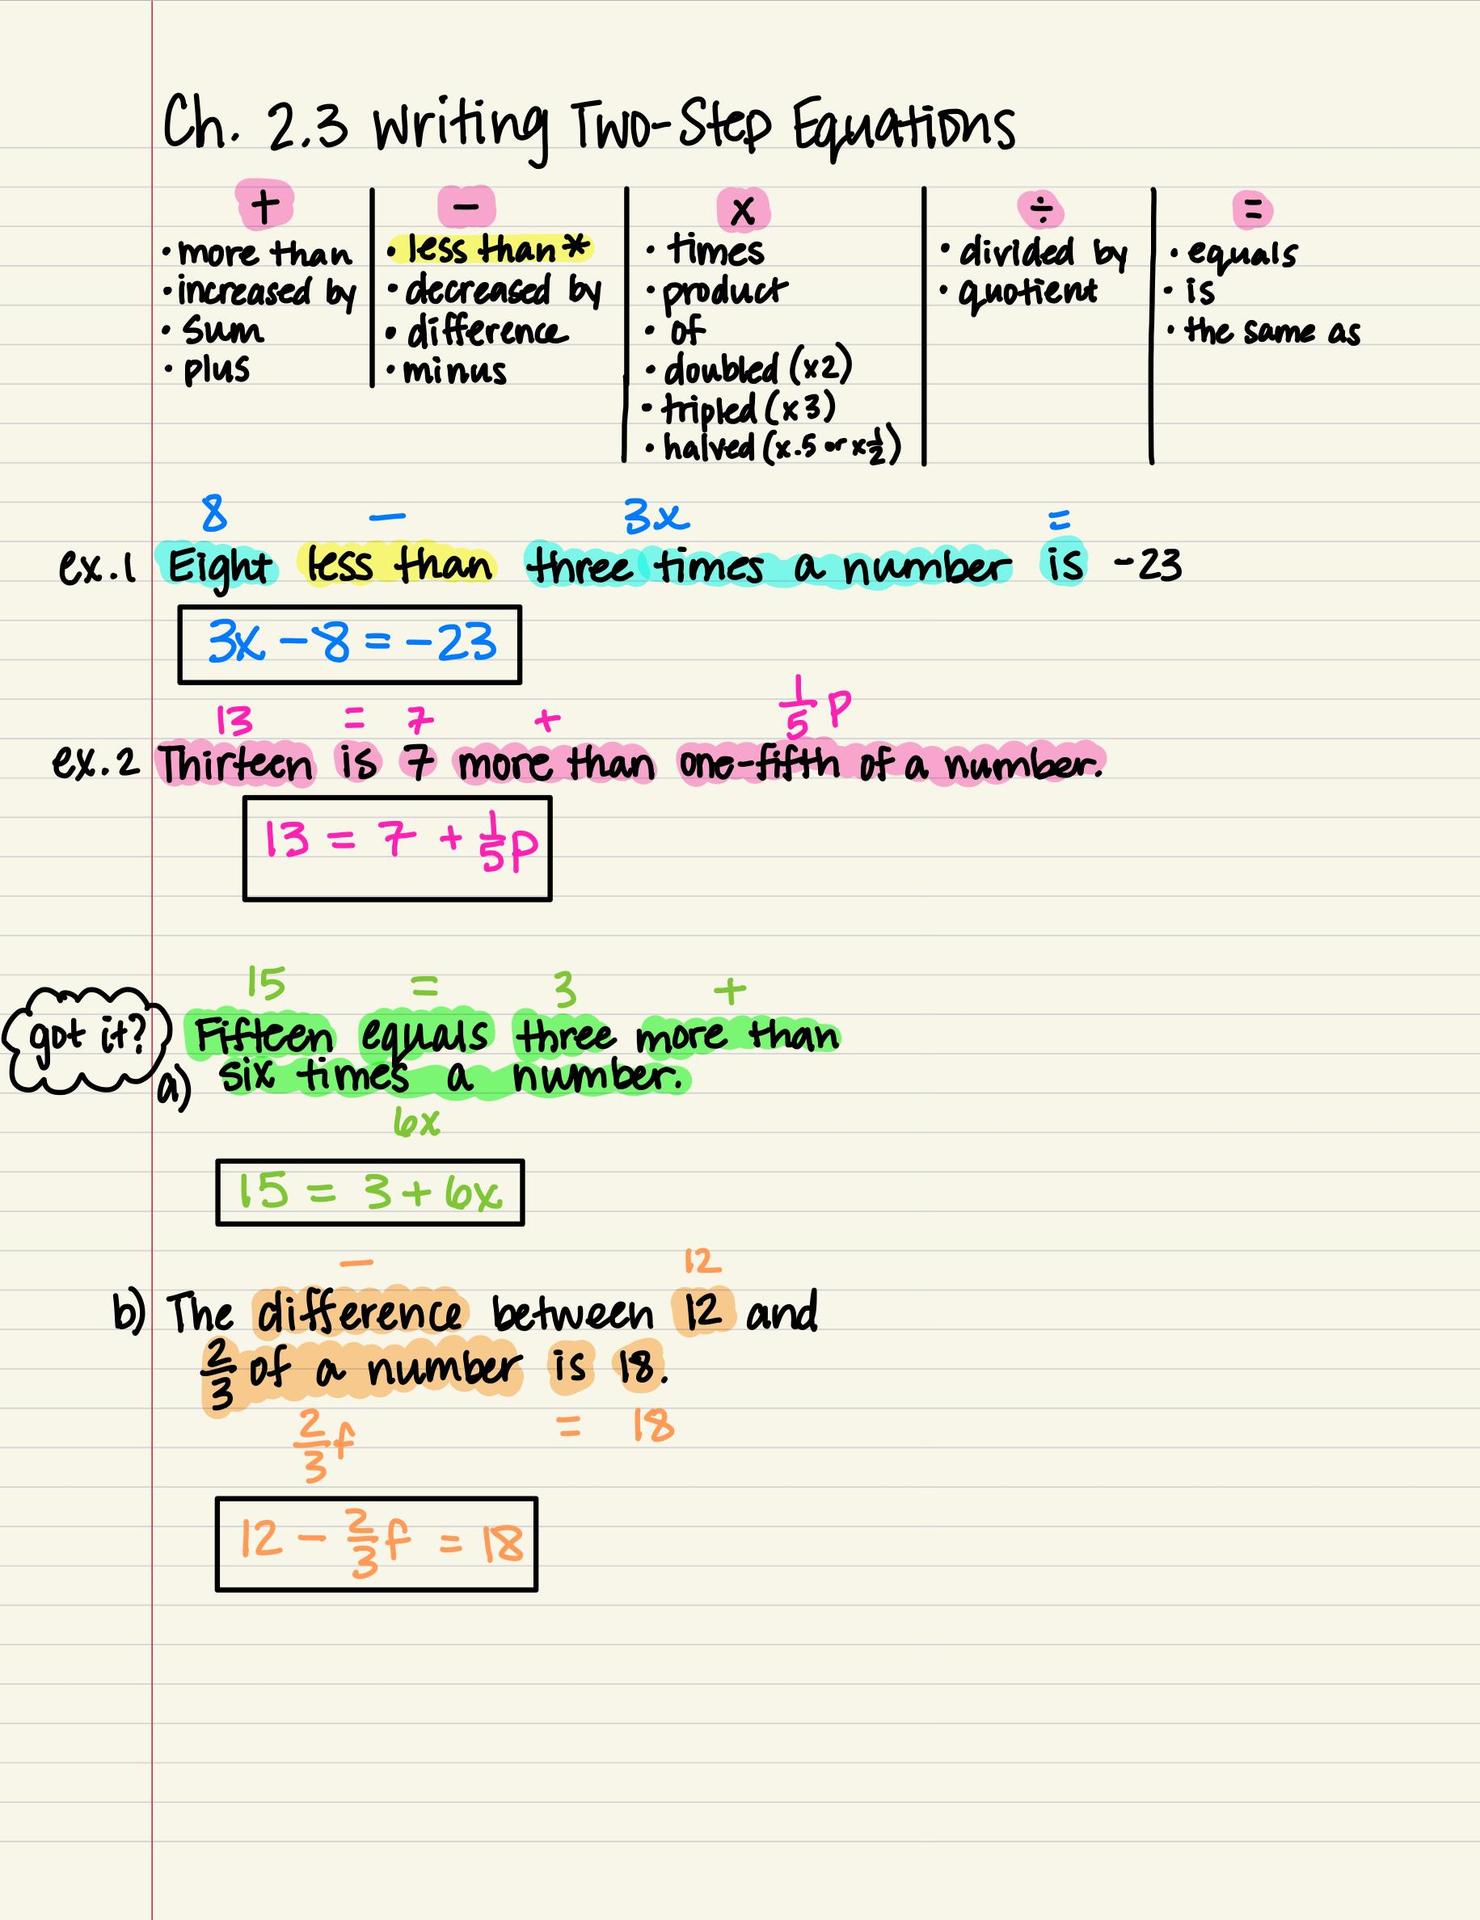 Ch. 2.3 Writing Two-Step Equations
+ − x ÷ =
• more than • less than* • times • divided by • equals
• increased by • decreased by • product • quotient • is
• sum • difference • of • the same as
• plus • minus • doubled (x2)
• tripled (x3)
• halved (x.5 or x½)
8 − 3x =
ex.1 Eight less than three times a number is -23
3x − 8 = −23
13 = 7 + 1/5 p
ex.2 Thirteen is 7 more than one-fifth of a number.
13 = 7 + 1/5 p
15 = 3 +
got it? Fifteen equals three more than
a) six times a number.
6x
15 = 3 + 6x
− 12
b) The difference between 12 and
2/3 of a number is 18.
2/3 f = 18
12 − 2/3 f = 18